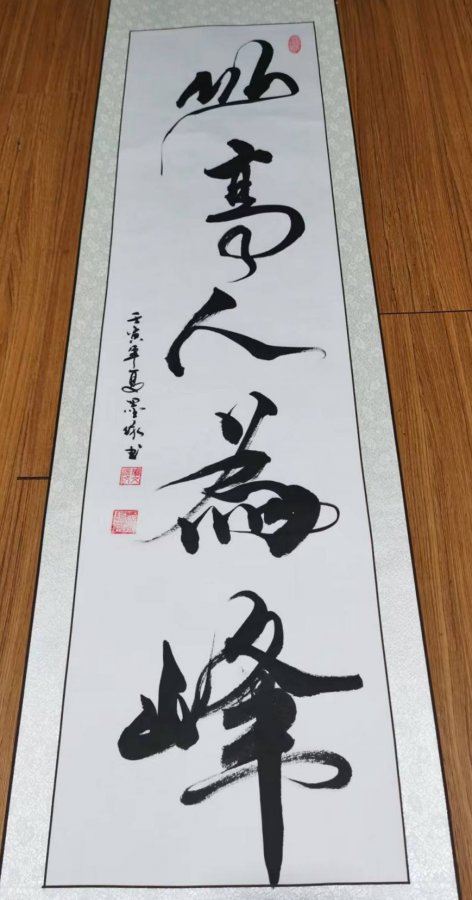 山高人為峰
壬寅年夏墨泳書